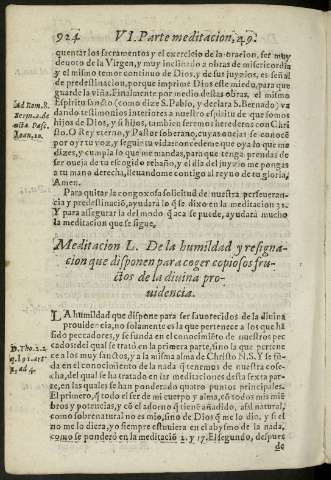 924 VI. Parte meditacion, 49.
quentar los sacramentos y el exercicio de la oracion, ser muy
deuoto de la Virgen, y muy inclinado a obras de misericordia
y el mismo temor continuo de Dios, y de sus juyzios, es señal
de predestinacion, porque imprime Dios este miedo, para que
guarde la viña. Finalmente por medio destas obras, el mismo
Ad Rom. 8.
Espiritu santo (como dize S. Pablo, y declara S. Bernardo) va
dando testimonios interiores a nuestro espiritu de que somos
hijos de Dios, y si hijos, tambien seremos herederos con Chri
Ioan, 10.
sto. O Rey eterno, y Pastor soberano, cuyas ouejas se conocē
por oyr tu voz, y seguir tu vida: concedeme que oya lo que me
dizes, y cumpla lo que me mandas, para que tenga prendas de
ser oueja de tu escogido rebaño, y el dia del juyzio me pongas
a tu mano derecha, lleuandome contigo al reyno de tu gloria,
Amen.
Para quitar la congoxosa solicitud de nuestra perseueran-
cia y predestinaciō, ayudará lo q̃ se dixo en la meditacion 31.
Y para assegurarla del modo q̃ aca se puede, ayudará mucho
la meditacion que se sigue.
Meditacion L. De la humildad y resigna-
cion que disponen para coger copiosos fru-
ctos de la diuina pro-
uidencia.
LA humildad que dispone para ser fauorecidos de la diuina
prouidencia, no solamente es la que pertenece a los que hā
sido peccadores, y se funda en el conocimiēto de nuestros pec
D. Tho. 2.2
cados del qual se trató en la primera parte, sino la que pertene
ce a los muy sanctos, y a la misma alma de Christo N. S. Y se fun-
da en el conocimiento de la nada q̃ tenemos de nuestra cose-
cha, del qual se ha tratado en las meditaciones desta sexta par-
te, en las quales se han ponderado quatro puntos principales.
El primero, q̃ todo el ser de mi cuerpo y alma, cō todos mis miē
bros y potencias, y cō el adorno q̃ tienē añadido, assi natural,
como sobrenatural no es mio, sino de Dios q̃ me lo dio, y si el
no me lo diera, yo siempre estuuiera en el abysmo de la nada,
como se ponderó en la meditació 2. y 17. El segundo, despues
de